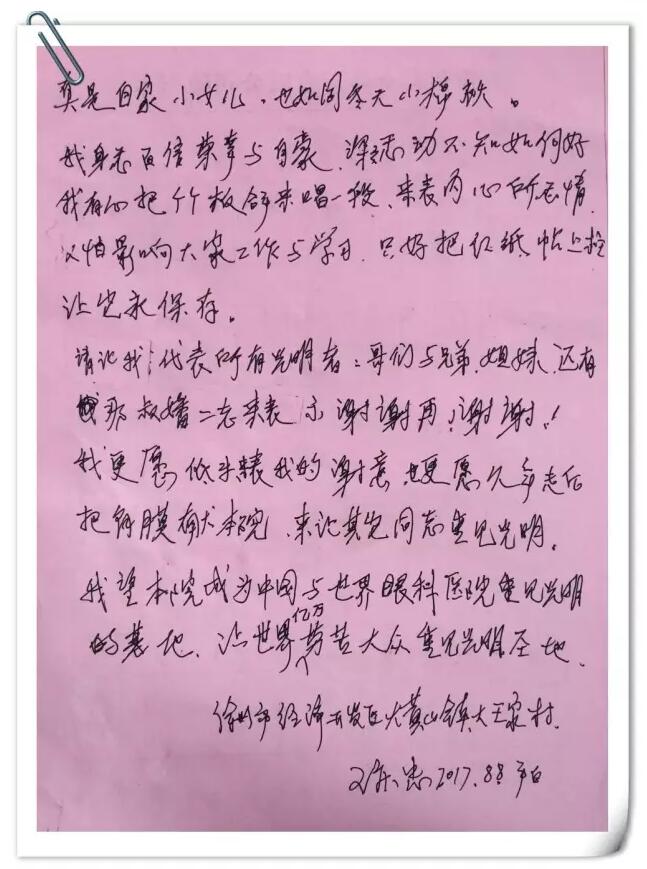 真是自家小女儿，也如同冬天小棉袄。
我身志百倍荣幸与自豪、深感动不知如何好
我有心把竹板合来唱一段、来表内心所有情
又怕影响大家工作与学习、只好把红纸帖上栓
让它永保存。
请让我：代表所有光明者：哥们与兄弟、姐妹、还有
那叔婶二志来表示谢谢再：谢谢！
我更愿 低头表我的谢意 也更愿久年走后
把角膜献本院、来让其它同志重见光明。
我望本院成为中国与世界眼科医院重见光明
的基地、让世界亿万劳苦大众重见光明圣地、
徐州市经济开发区大黄山镇大王家村.
2017.8.8